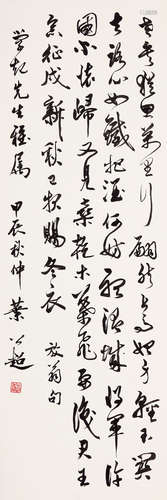 老矣猶思萬里行翩然上馬始身輕玉關
去路心如鐵把酒何妨聽渭城將軍許
國不懷歸又見桑乾木葉飛要識君王
念征戍新秋已報賜冬衣 放翁句
先生雅屬 甲辰秋仲 葉公超